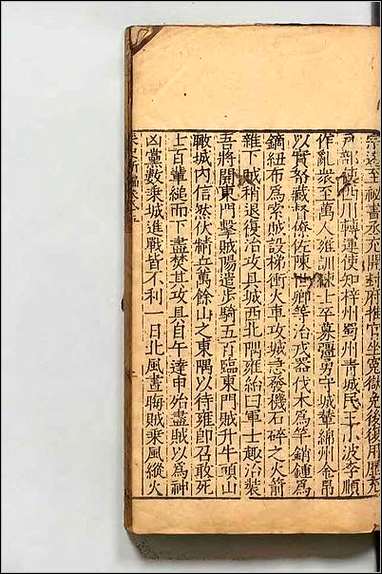 宗逵至祕書丞充開封府推官坐寃獄免後復用歷
戶部使西川轉運使知梓州蜀州青城民王小波李順
作亂衆至萬人雍訓練士卒募彊勇守城輦綿州金帛
以實帑藏督僚佐陳世卿等治戎器伐木爲竿銷鍾爲
鏑紐布爲索賊設梯衝火車攻城急發機石碎之火箭
雜下賊稍退復治攻具城西北隅雍紿曰軍士趣治裝
吾將開東門擊賊陽遣步騎五百臨東門賊升牛頭山
瞰城內信然伏精兵萬餘山之東隅以待雍卽召敢死
士百輩縋而下盡焚其攻具自午達申始盡賊以爲神
凶黨數乘城進戰皆不利一日北風晝晦賊乘風縱火
宋史新編卷